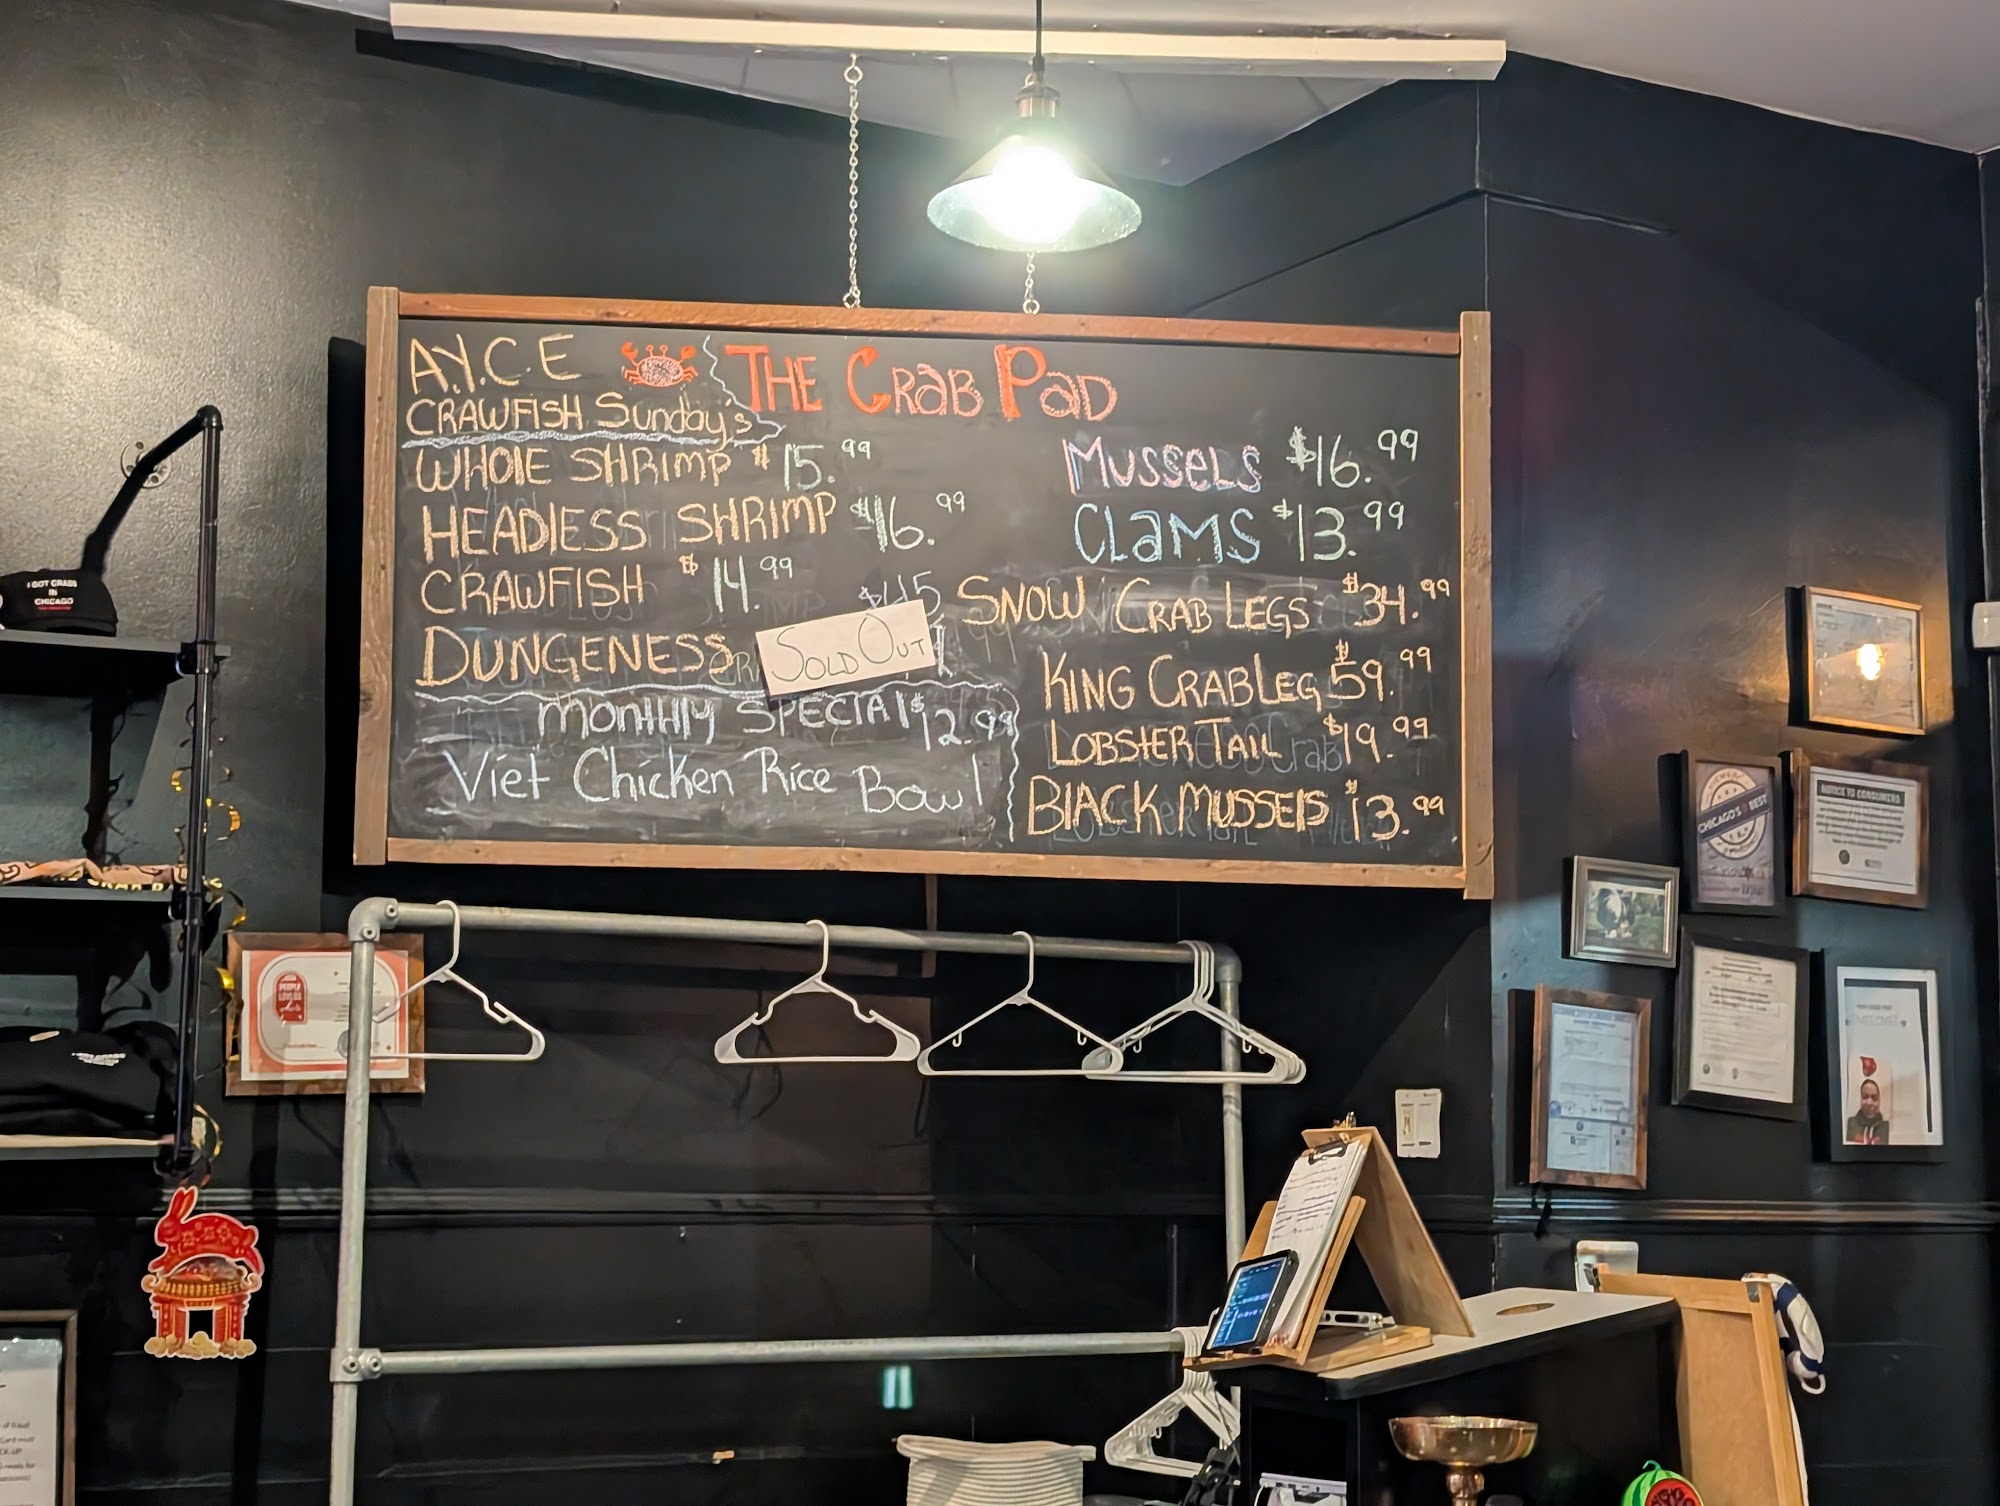 A.Y.C.E
CRAWFISH Sunday's
THE CRAB PAD
WHOlE SHRIMP $15.99
HEADlESS SHRIMP $16.99
CRAWFISH $14.99
$45
DUNGENESS
SOLD OUT
MONTHlY SPECIAl $12.99
Viet Chicken Rice Bowl
MUSSELS $16.99
CLAMS $13.99
SNOW CRAB LEGS $34.99
KING CRAB LEG $59.99
LOBSTER TAIL $19.99
BlACK MUSSElS $13.99
I GOT CRABS
IN
CHICAGO
CHICAGO'S BEST
NOTICE TO CONSUMERS
PEOPLE
LOVE US